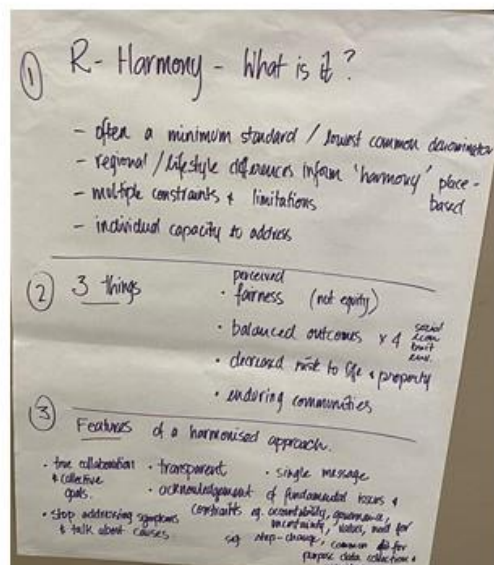 ① R - Harmony - What is it?
- often a minimum standard / lowest common denominator
- regional / lifestyle differences inform 'harmony' place-
based
- multiple constraints & limitations
- individual capacity to address
② 3 things
perceived
• fairness (not equity)
• balanced outcomes x 4 social
econ
built
env.
• decreased risk to life & property
• enduring communities
③ Features of a harmonised approach.
• true collaboration
& collective
goals.
• stop addressing symptoms
& talk about causes
• transparent • single message
• acknowledgement of fundamental issues &
constraints eg. accountability, governance,
uncertainty, values, need for
step-change, common for
purpose data collection &